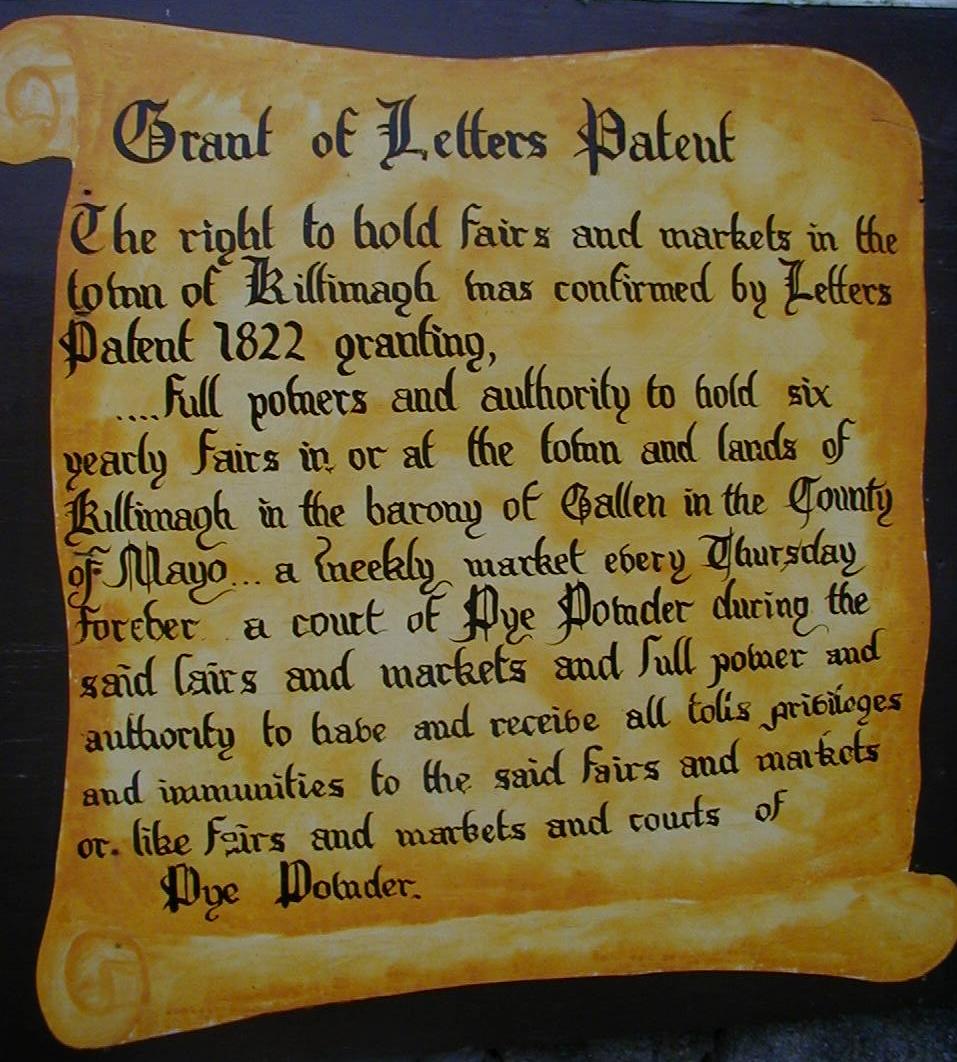 Grant of Letters Patent
The right to hold fairs and markets in the
town of Killimagh was confirmed by Letters
Patent 1822 granting,
....full powers and authority to hold six
yearly fairs in or at the town and lands of
Killimagh in the barony of Gallen in the County
of Mayo... a weekly market every Thursday
forever a court of Pye Powder during the
said fairs and markets and full power and
authority to have and receive all tolls privileges
and immunities to the said fairs and markets
or. like fairs and markets and courts of
Pye Powder.